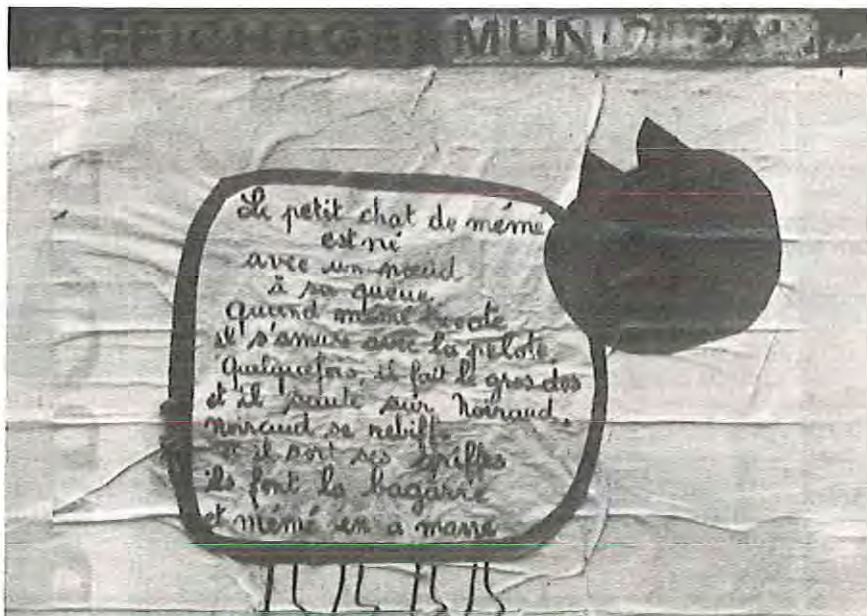 AFFICHAGE MUN
Le petit chat de mémé
est né
avec un nœud
à sa queue.
Quand mémé
il s'amuse avec la pelote.
Quelquefois, il fait le gros dos
et il saute sur Noiraud,
noiraud se rebiffe
et il sort ses griffes
ils font la bagarre
et mémé en a marre